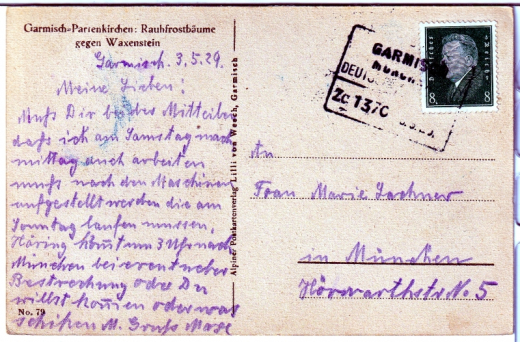 Garmisch-Partenkirchen: Rauhfrostbäume
gegen Waxenstein
Garmisch. 3.5.29.
Meine Lieben!
Muß Dir bei des Mitteilen
daß ich am Samstag nach
mittag auch arbeiten
muß nach den Maschinen
aufgestellt werden die am
Sonntag laufen mussen,
Häring kom̄t um 3 Uhr nach
München bei eventueler
Bestrechung oder Du
willst kom̄en oder was
schiken M. Gruß Maxe
No. 79
Alpiner Postkartenverlag Lilli von Weech, Garmisch
GARMIS
MÜNCH
DEUTSC
Zc 137C
8 8
An
Frau Marie Lachner
in München
Hörwarthstr N. 5